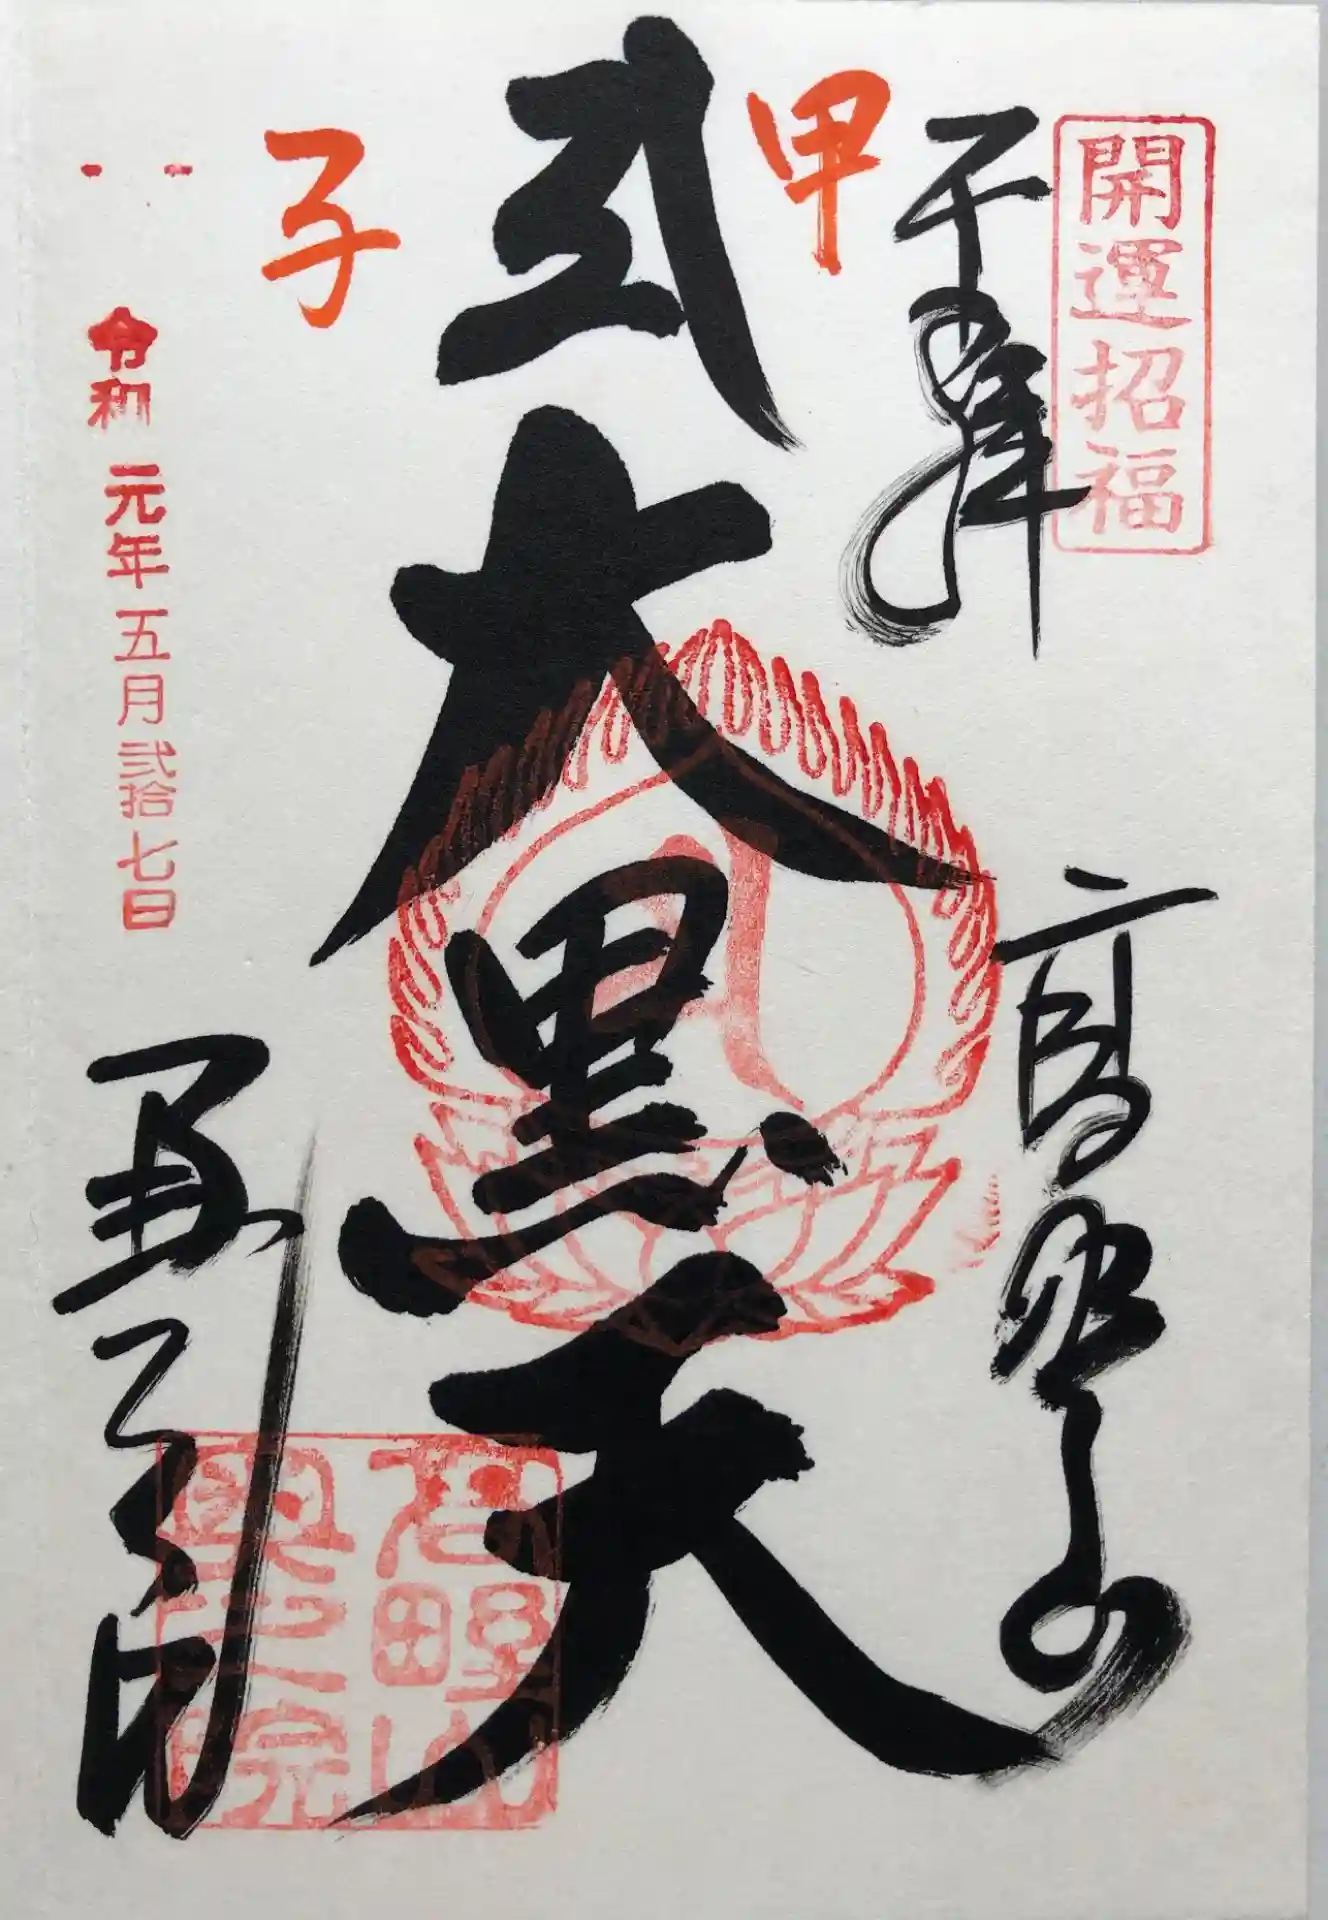 開運招福
奉拝
高野山
甲
大黒天
子
令和元年五月弐拾七日
奥之院
高野山
奥之院